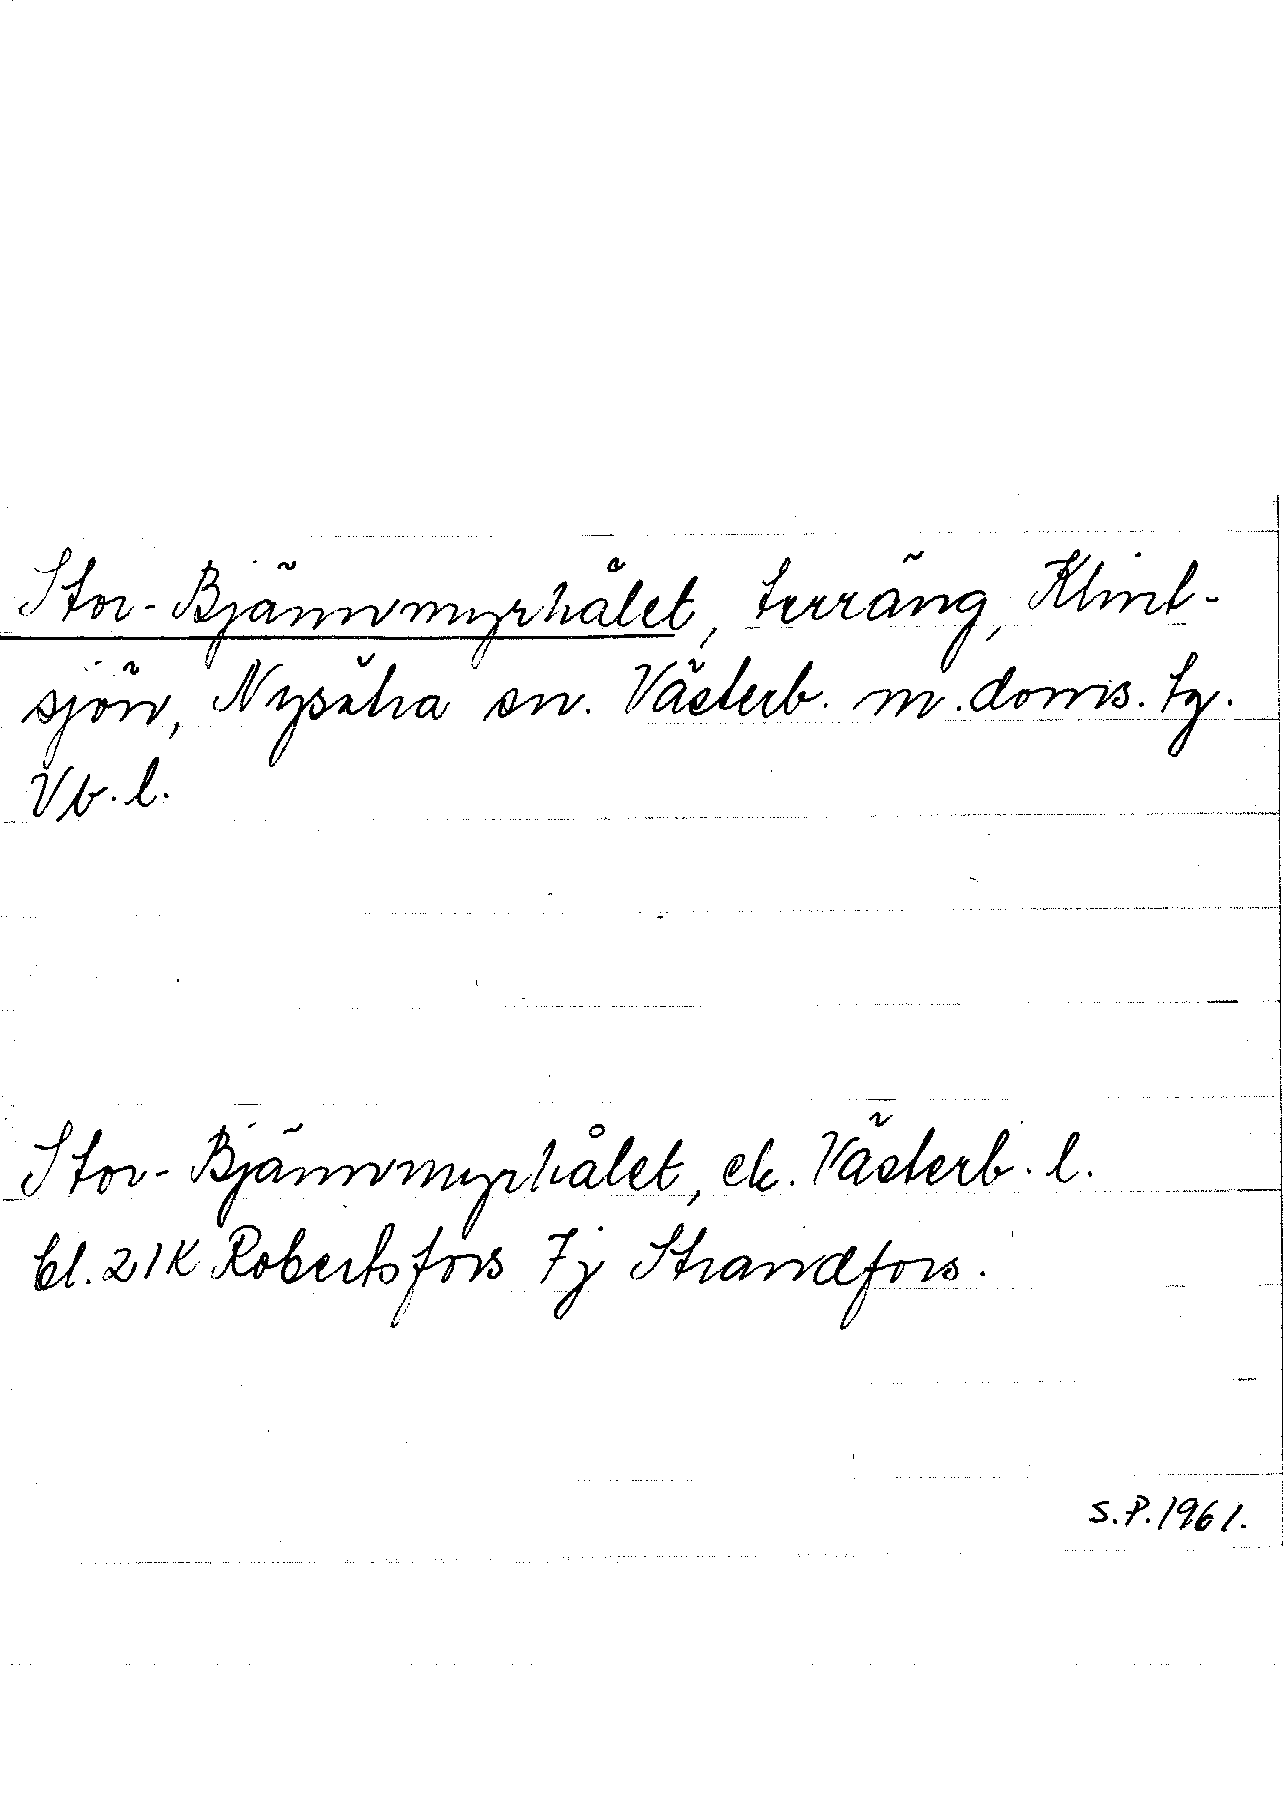 Stor-Bjännmyrhålet, terräng, Klint-
sjön, Nysätra sn. Västerb. m. doms. tg.
Vb. l.
Stor-Bjännmyrhålet, ek. Västerb. l.
bl. 21K Robertsfors 7j Strandfors.
S.P. 1961.